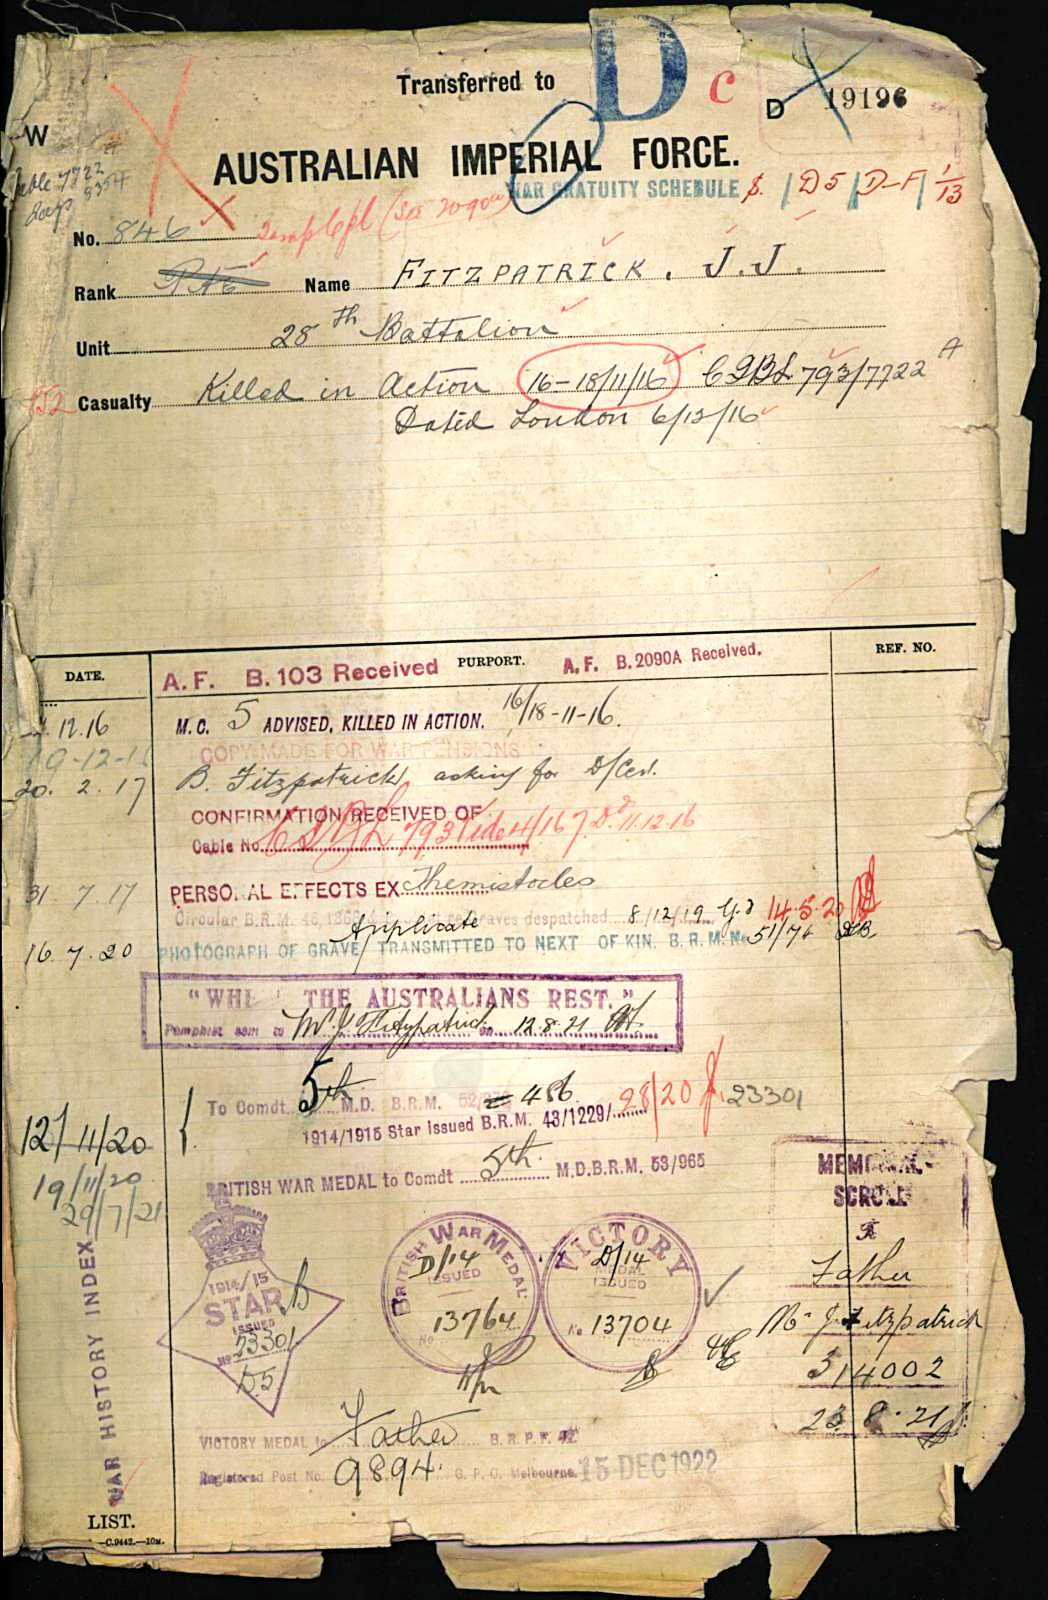 Transferred to D c
D 19196
W
AUSTRALIAN IMPERIAL FORCE.
WAR GRATUITY SCHEDULE | D5 | D-F | 1/13
No. 846
Rank Pte Name FITZPATRICK. J.J.
Unit 28th Battalion
852 Casualty Killed in Action 16-18/11/16 793/7722 A
Dated London 6/12/16
DATE. PURPORT. REF. NO.
A.F. B.103 Received A.F. B.2090A Received.
12.16 M.C. 5 ADVISED, KILLED IN ACTION. 16/18-11-16.
COPY MADE FOR WAR PENSIONS
20. 2. 17 B. Fitzpatrick asking for D/Cert.
CONFIRMATION RECEIVED OF
Cable No. 793 11.12.16
31 7.17 PERSONAL EFFECTS EX Themistocles
Circular B.R.M. despatched 8/12/19 14.5.20
Triplicate
16.7.20 PHOTOGRAPH OF GRAVE TRANSMITTED TO NEXT OF KIN. B.R.M. No 51/74
"WHERE THE AUSTRALIANS REST."
Pamphlet sent to Mr J. Fitzpatrick on 12.8.21
To Comdt 5th M.D. B.R.M. 486 28/20 23301
12/11/20 1914/1915 Star Issued B.R.M. 43/1229/
19/11/20 BRITISH WAR MEDAL to Comdt 5th M.D.B.R.M. 53/965
29/7/21
MEMORIAL SCROLL
Father
Mr J. Fitzpatrick
514002
23.8.21
1914/15 STAR ISSUED No 23301 D.5
BRITISH WAR MEDAL D/14 ISSUED No 13764
VICTORY MEDAL D/14 ISSUED No 13704
VICTORY MEDAL to Father B.R.P.F.
Registered Post No. 9894 G.P.O. Melbourne. 15 DEC 1922
WAR HISTORY INDEX
LIST.
C.9442.—10M.